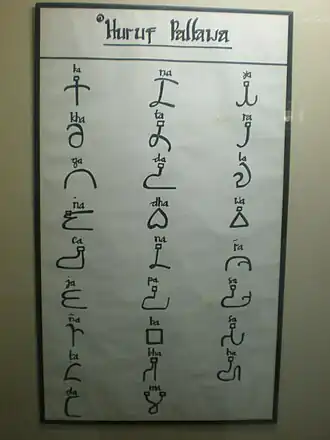 Huruf Pallawa
ka na ya
kha ta ra
ga da la
ṅa dha wa
ca na śa
ja pa sa
ña ba sa
ta bha ha
da ma